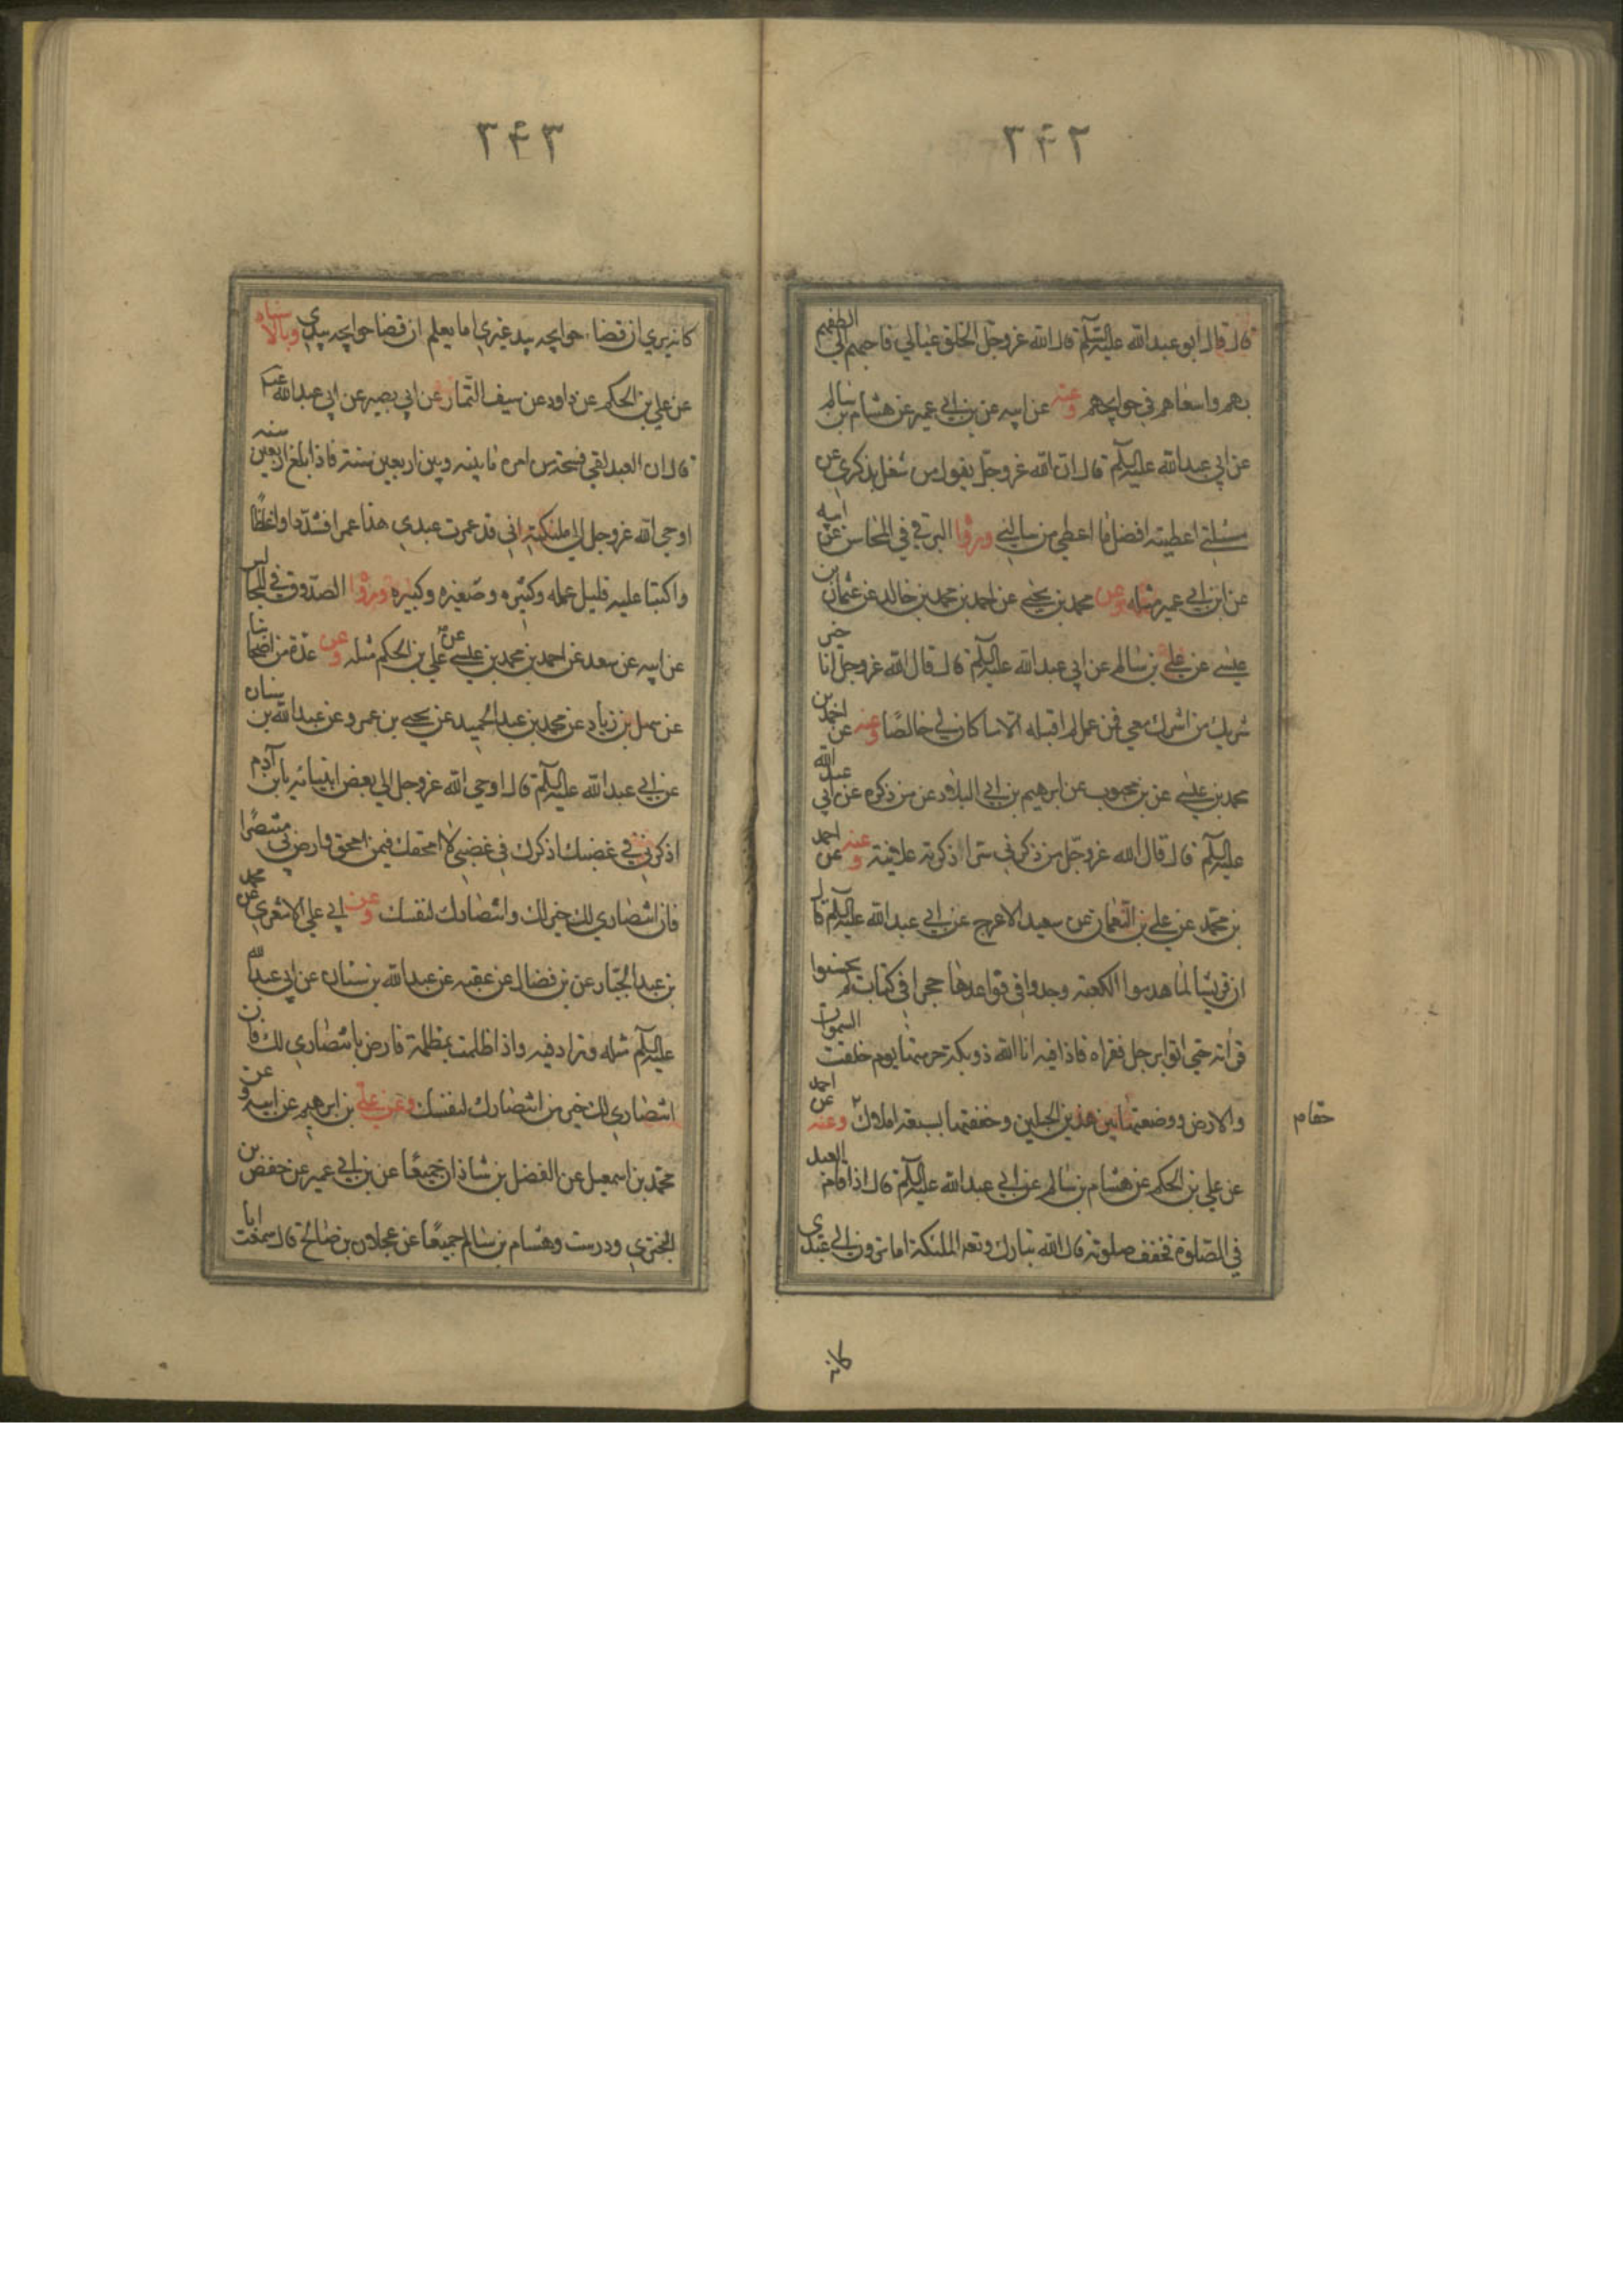 ٣۴٢
قال قال ابو عبدالله عليه السلام قال الله عزوجل الخلق عيالي فاحبهم الي الطفهم
بهم واسعاهم في حوايجهم وعنه عن ابيه عن بن ابي عمير عن هشام بن سالم
عن ابي عبدالله عليه السلام قال ان الله عزوجل يقول من شغل بذكري عن
مسئلتي اعطيته افضل ما اعطي من سالني ورواه البرقي في المحاسن عن ابيه
عن ابن ابي عمير مثله وعن محمد بن يحيي عن احمد بن محمد بن خالد عن عثمان بن
عيسي عن علي بن سالم عن ابي عبدالله عليه السلام قال قال الله عزوجل انا خير
شريك من اشرك معي في عمل لم اقبله الا ما كان لي خالصا وعنه عن احمد بن
محمد بن عيسي عن بن محبوب عن ابرهيم بن ابي البلاد عن من ذكره عن ابي عبدالله
عليه السلام قال قال الله عزوجل من ذكرني سرا ذكرته علانية وعنه عن احمد
بن محمد عن علي بن النعمان عن سعيد الاعرج عن ابي عبدالله عليه السلام قال
ان قريشا لما هدموا الكعبة وجدوا في قواعدها حجرا في كتاب لم يحسنوا
قراته حتي اتوا برجل فقراه فاذا فيه انا الله ذو بكة حرمتها يوم خلقت السموات
والارض ووضعتها بين هذين الجبلين وحففتها بسبعة املاك وعنه عن احمد
حفام
عن علي بن الحكم عن هشام بن سالم عن ابي عبدالله عليه السلام قال اذا قام العبد
في الصلوة فخفف صلوته قال الله تبارك وتعه لملئكته اما ترون الي عبدي
كانه
٣۴٣
كانه يري ان قضاء حوايجه بيد غيري اما يعلم ان قضا حوايجه بيدي وبالاسناد
عن علي بن الحكم عن داود عن سيف التمار عن ابي بصير عن ابي عبدالله
قال ان العبد لفي فسحة من امره ما بينه وبين اربعين سنة فاذا بلغ اربعين سنه
اوحي الله عزوجل الي ملئكته اني قد عمرت عبدي هذا عمرا فشددا وغلظا
واكتبا عليه قليل عمله وكثيره وصغيره وكبيره ورواه الصدوق في المجالس
عن ابيه عن سعد عن احمد بن محمد بن عيسي عن علي بن الحكم مثله وعن عدة من اصحابنا
عن سهل بن زياد عن محمد بن عبدالحميد عن يحيي بن عمرو عن عبدالله بن سنان
عن ابي عبدالله عليه السلام قال اوحي الله عزوجل الي بعض انبيائه يابن آدم
اذكرني في غضبك اذكرك في غضبي لا امحقك فيمن امحق وارض بي منتصرا
فان انتصاري لك خير لك من انتصارك لنفسك وعن ابي علي الاشعري عن محمد
بن عبدالجبار عن بن فضال عن عقبه عن عبدالله بن سنان عن ابي عبدالله
عليه السلم مثله وزاد فيه واذا ظلمت بمظلمة فارض بانتصاري لك فان
انتصاري لك خير من انتصارك لنفسك وعن علي بن ابرهيم عن ابيه وعن
محمد بن اسمعيل عن الفضل بن شاذان جميعا عن بن ابي عمير عن حفص بن
البختري ودرست وهشام بن سالم جميعا عن عجلان بن صالح قال سمعت ابا